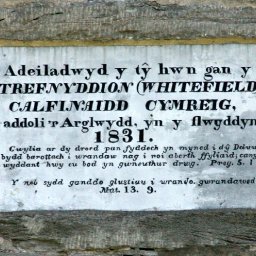 Adeiladwyd y tŷ hwn gan y
TREFNYDDION (WHITEFIELD
CALFINAIDD CYMREIG,
addoli 'r Arglwydd, yn y flwyddyn
1831.
Gwylia ar dy droed pan fyddech yn myned i dŷ Dduw
bydd barottach i wrandaw nag i roi aberth ffyliaid; canys
wyddant hwy eu bod yn gwneuthur drwg. Preg. 5. 1
Y neb sydd ganddo glustiau i wrando, gwrandawed
Mat. 13. 9.